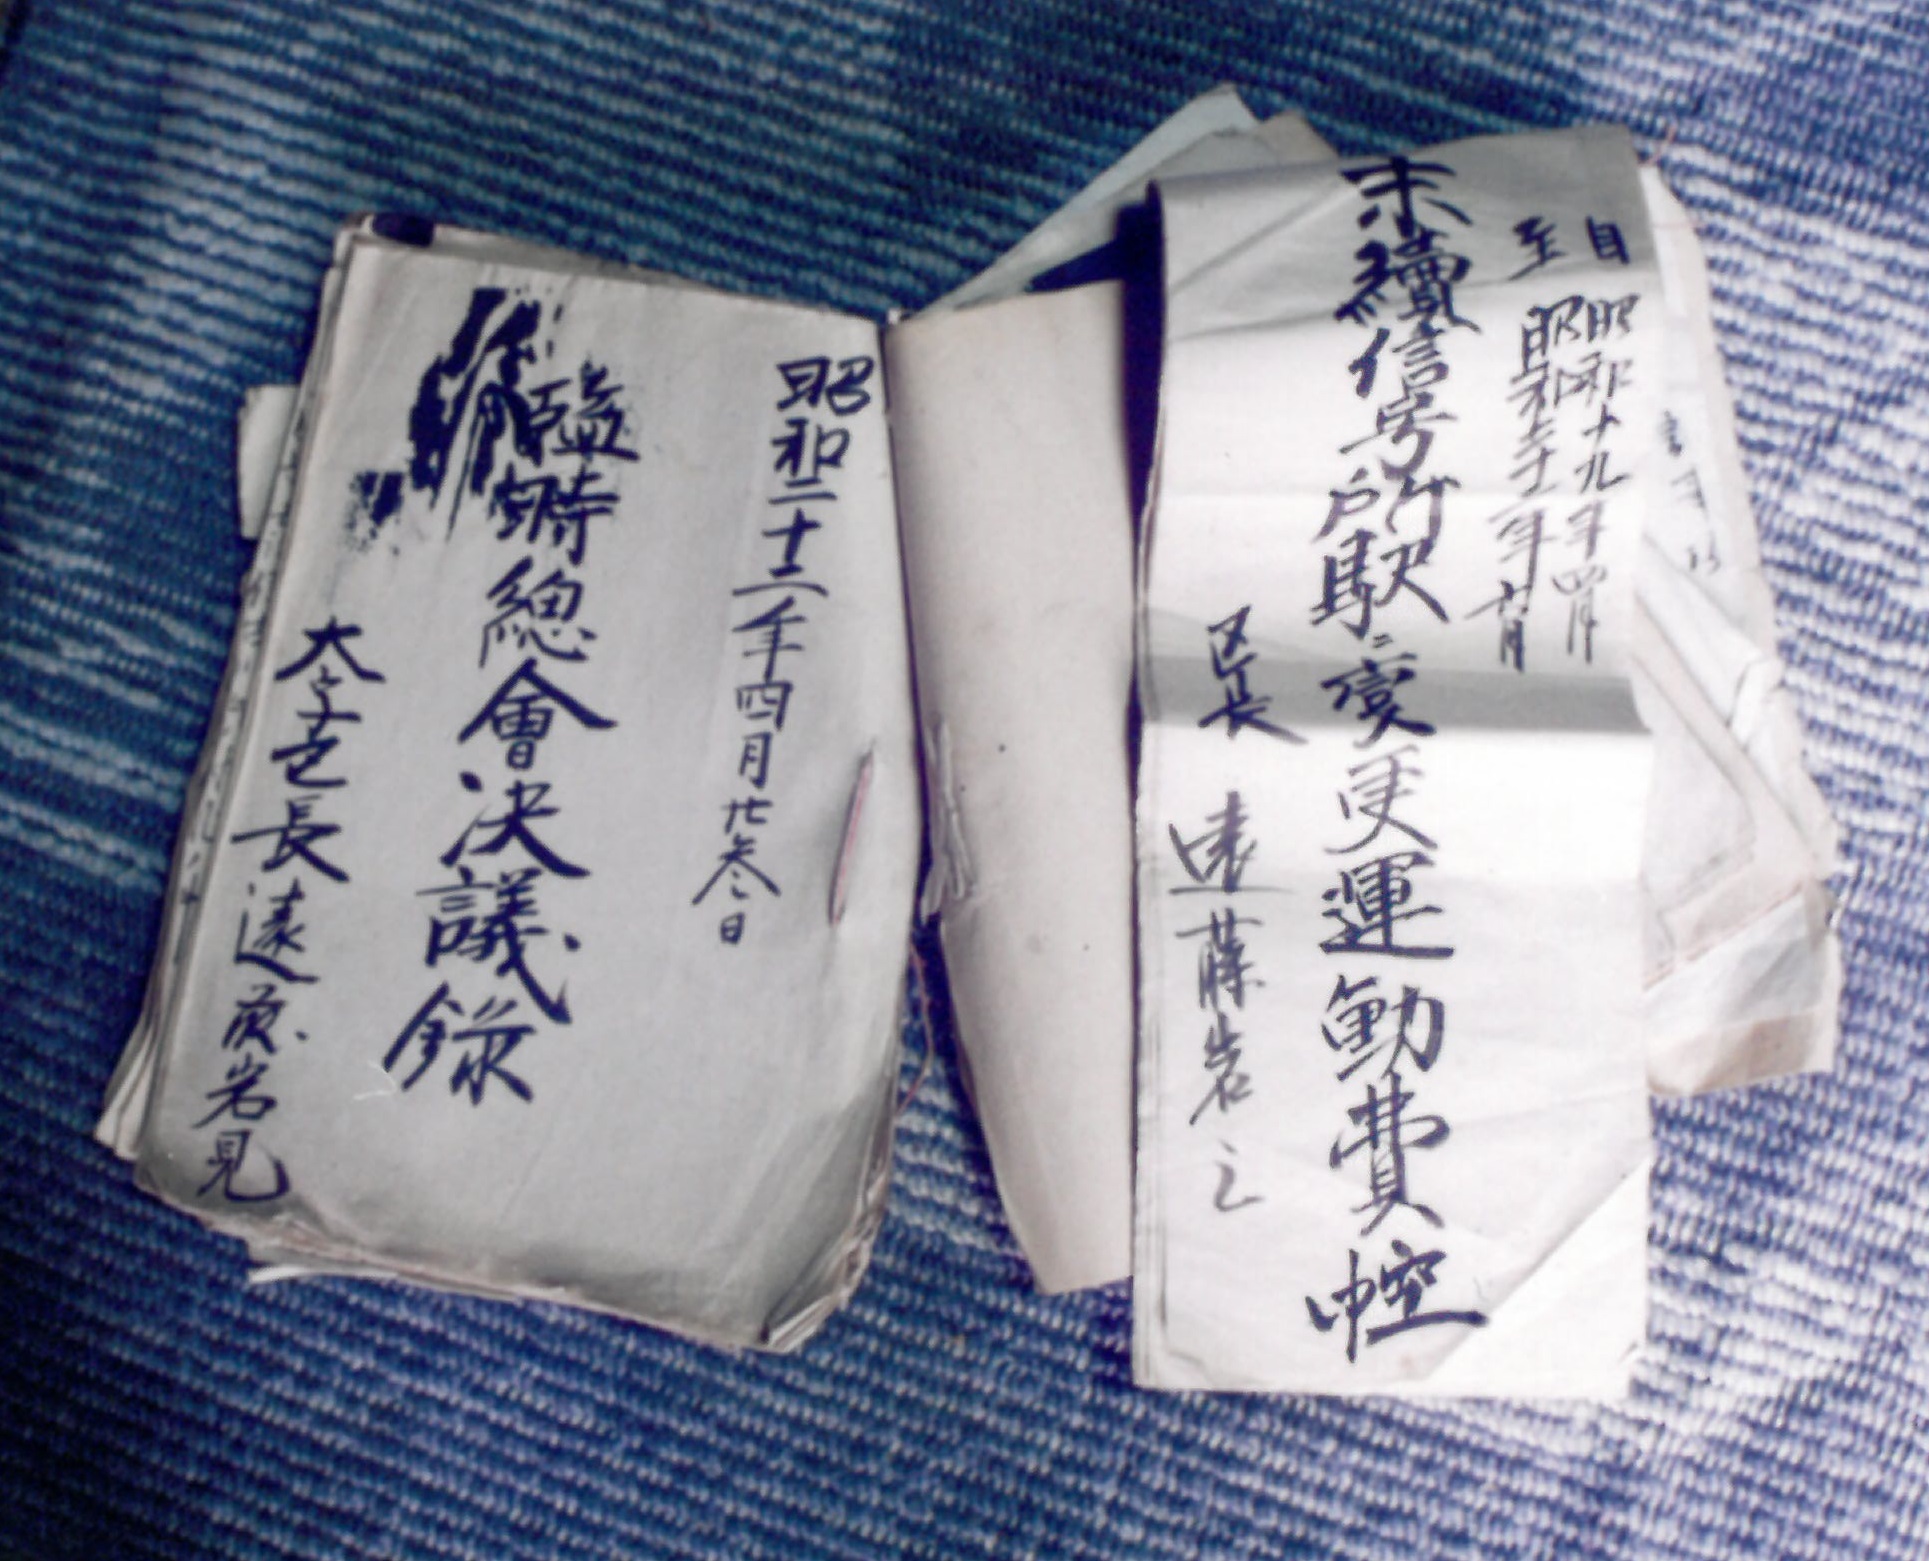 自 昭和十九年四月
至 昭和二十二年六月
末續信号所駅ニ変更運動費控
区長 遠藤岩之
昭和二十二年四月廿参日
臨時総會決議錄
大字区長遠藤岩見